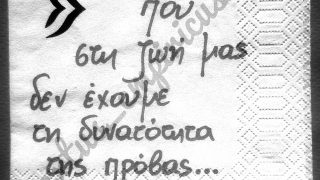 που
στη ζωή μας
δεν έχουμε
τη δυνατότητα
της πρόβας...